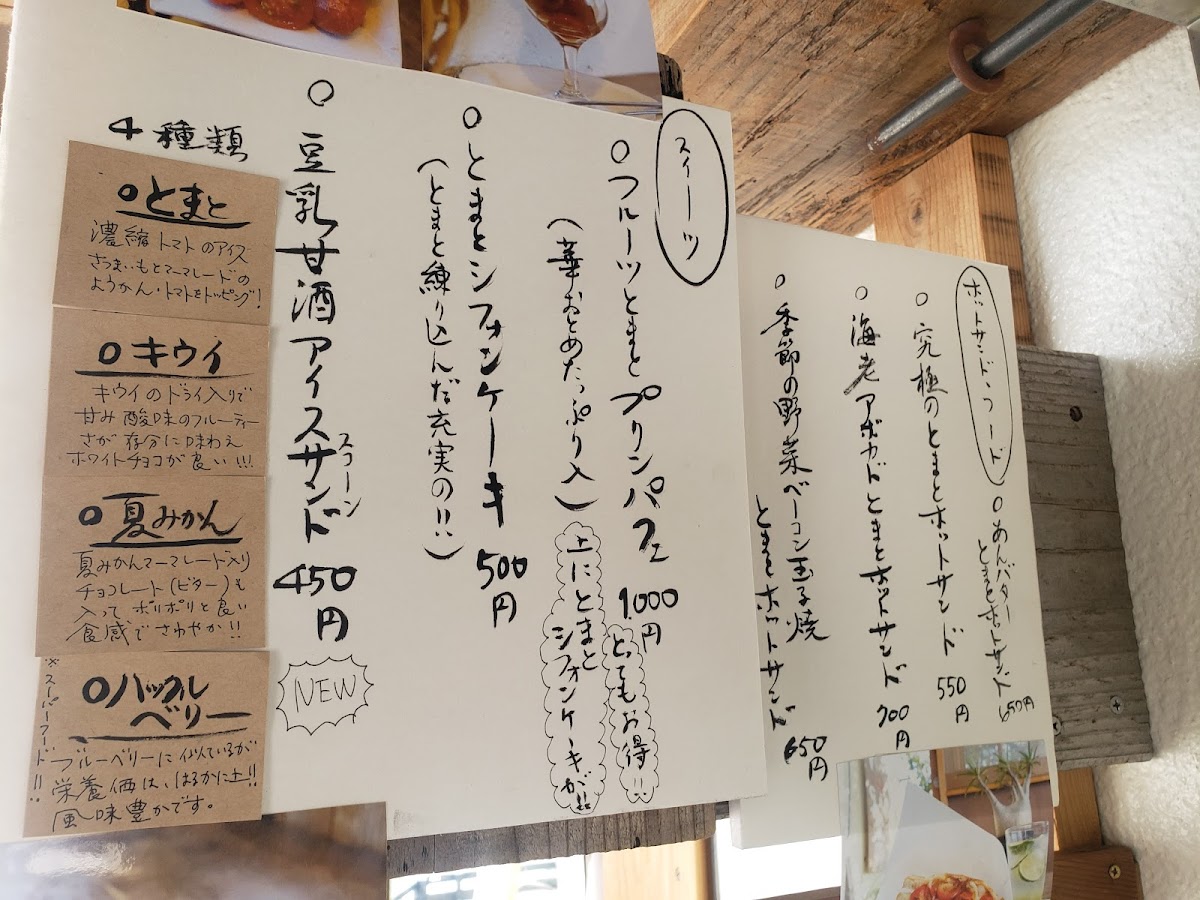 ホットサンド・フード
○あんバター
とまとホットサンド
650円
○究極のとまとホットサンド
550円
○海老アボカドとまとホットサンド
700円
○季節の野菜ベーコン玉子焼
とまとホットサンド
650円
スイーツ
○フルーツとまとプリンパフェ
1,000円
とってもお得!!
(華おとめたっぷり入)
上にとまと
シフォンケーキが!!
○とまとシフォンケーキ
500円
(とまと練り込んだ充実の!!)
○豆乳甘酒アイスサンド
スコーン
450円
NEW
4種類
○とまと
濃縮トマトのアイス
さつまいもとマーマレードの
ようかん・トマトをトッピング!
○キウイ
キウイのドライ入りで
甘み酸味のフルーティー
さが存分に味わえ
ホワイトチョコが良い!!!
○夏みかん
夏みかんマーマレード入り
チョコレート(ビター)も
入ってポリポリと良い
食感でさわやか!!
○ハックル
ベリー
※スーパーフード!!
ブルーベリーに似ているが
栄養価は、はるかに上!!
風味豊かです。